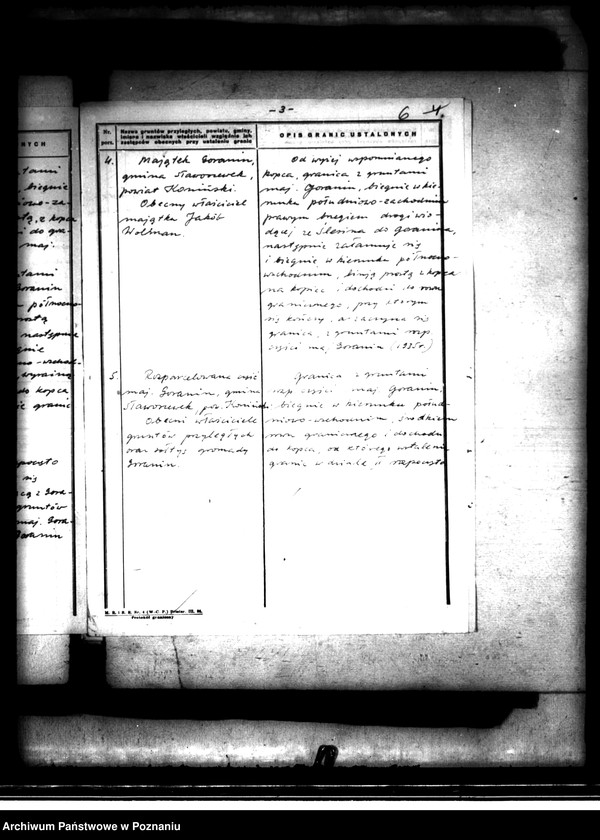 NYCH
- 3 -
6 4.
Nr. porz.
Nazwa gruntów przyległych, powiatu, gminy,
imiona i nazwiska właścicieli względnie ich
zastępców obecnych przy ustalaniu granic
OPIS GRANIC USTALONYCH
4.
Majątek Goranin,
gmina Sławoszewek,
powiat Koniński.
Obecny właściciel
majątku Jakób
Wolman.
Od wyżej wspomnianego
kopca, granica z gruntami
maj. Goranin, biegnie w kie-
runku południowo-zachodnim
prawym brzegiem drogi wio-
dącej ze Ślesina do Goranina,
następnie załamuje się
i biegnie w kierunku północno-
wschodnim, linją prostą z kopca
na kopiec i dochodzi do rowu
granicznego, przy którym
się kończy, a zaczyna się
granica z gruntami rozp.
części maj. Goranin (1935r.)
5.
Rozparcelowana część
maj. Goranin, gmina
Sławoszewek, pow. Koniński
Obecni właściciele
gruntów przyległych
oraz sołtys gromady
Goranin.
Granica z gruntami
rozp. części maj. Goranin,
biegnie w kierunku połud-
niowo-wschodnim, środkiem
rowu granicznego i dochodzi
do kopca, od którego ustalenie
granic w dziale II rozpoczęto
Protokół graniczny
Archiwum Państwowe w Poznaniu